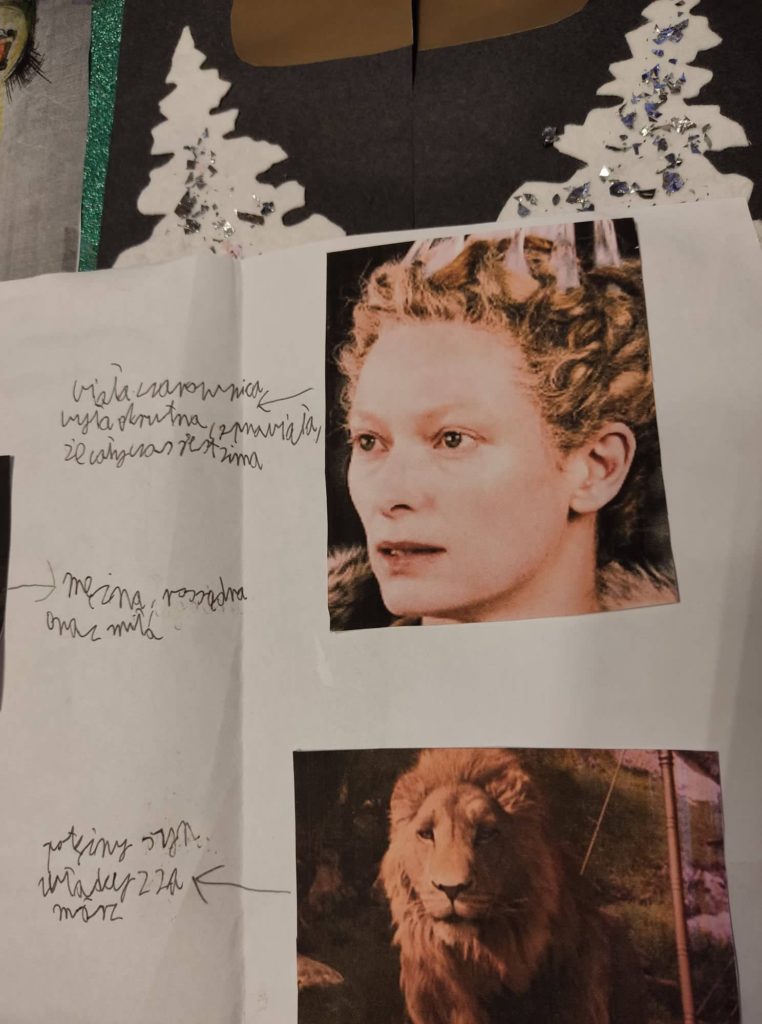 biała czarownica,
była okrutna, sprawiała,
że cały czas jest zima
mężna, rozsądna
oraz miła
potężny syn
władcy zza
mórz